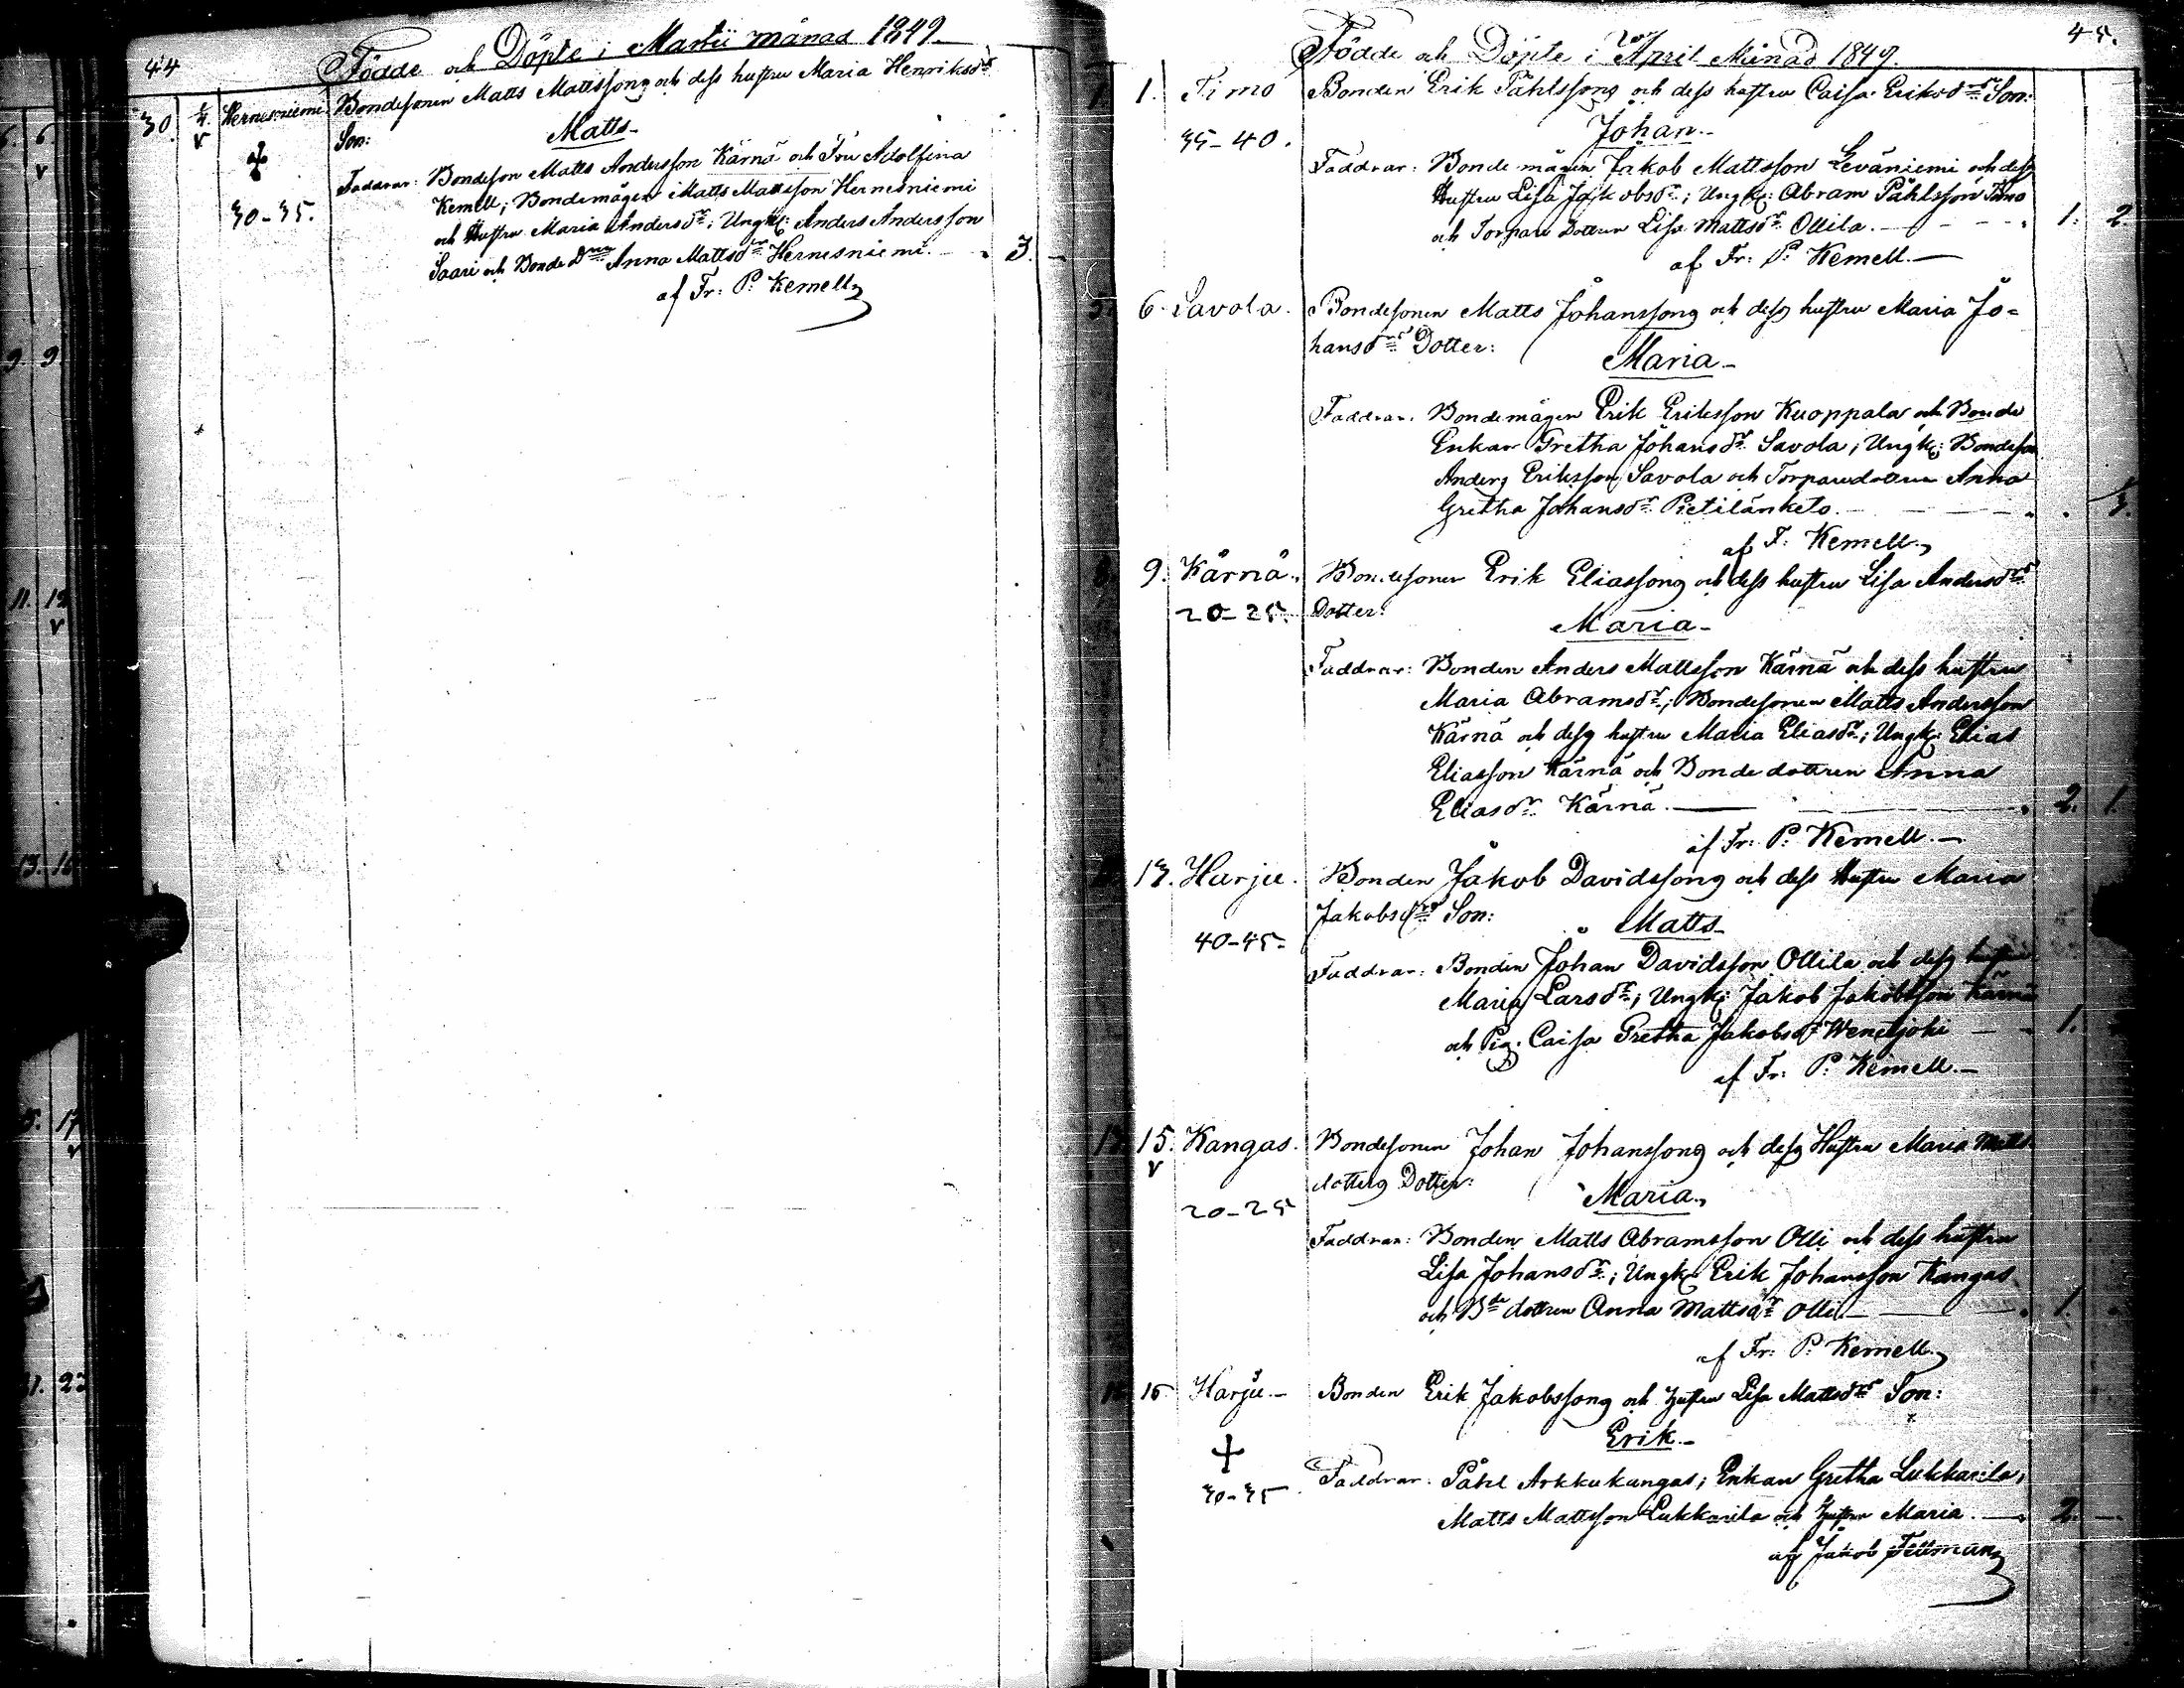 44
Födde och Döpte i Martii månad 1849.
30. 1/4. Hernesniemi. Bondesonen Matts Mattssons och dess hustru Maria Henriksdrs
Son:
Matts
Faddrar: Bondeson Matts Andersson Kärnä och Fru Adolfina
30-35.
Kemell; Bondemågen Matts Mattsson Hernesniemi
och Hustru Maria Andersdr; Ungk: Anders Andersson
Saari och Bonde Drn Anna Mattsdr Hernesniemi. 3.
af Fr: P: Kemell
6. 6.
v
9. 9.
11. 12
v
13. 16
5. 17
v
21. 22
45.
Födde och Döpte i April Månad 1849.
1. 1. Timo Bonden Erik Påhlssons och dess hustru Caisa Eriksdrs Son:
35-40. Johan
Faddrar: Bondemågen Jakob Mattsson Leväniemi och dess
Hustru Lisa Jakobsdr; Ungk: Abram Påhlsson Timo
och Torpare Dottren Lisa Mattsdr Ollila. 1. 2.
af Fr: P: Kemell.
5. 6. Savola. Bondesonen Matts Johanssons och dess hustru Maria Jo=
hansdrs Dotter:
Maria
Faddrar: Bondemågen Erik Eriksson Kuoppala och Bonde
Enkan Gretha Johansdr Savola; Ungk: Bondeson
Anders Eriksson Savola och Torparedottren Anna
Gretha Johansdr Pietilänketo. 3.
af F: Kemell.
8. 9. Kärnä. Bondesonen Erik Eliassons och dess hustru Lisa Andersdrs
20-25. Dotter:
Maria
Faddrar: Bonden Anders Mattsson Kärnä och dess hustru
Maria Abramsdr; Bondesonen Matts Andersson
Kärnä och dess hustru Maria Eliasdr; Ungk: Elias
Eliasson Kärnä och Bondedottren Anna
Eliasdr Kärnä. 2. 1
af Fr: P: Kemell.
13. Harju. Bonden Jakob Davidssons och dess Hustru Maria
Jakobsdrs Son:
40-45. Matts
Faddrar: Bonden Johan Davidsson Ollila och dess hustru
Maria Larsdr; Ungk: Jakob Jakobsson Kärnä
och Pig. Caisa Gretha Jakobsdr Wenetjoki 1.
af Fr: P: Kemell.
15. Kangas. Bondesonen Johan Johanssons och dess Hustru Maria Matts
v
dotters Dotter:
20-25 Maria
Faddrar: Bonden Matts Abramsson Olli och dess hustru
Lisa Johansdr; Ungk: Erik Johansson Kangas
och Bde dottren Anna Mattsdr Olli 1.
af Fr: P: Kemell.
16 Harju. Bonden Erik Jakobssons och Hustru Lisa Mattsdrs Son:
Erik
30-35. Faddrar: Påhl Arkkukangas; Enkan Gretha Lukkarila;
Matts Mattsson Lukkarila och Hustru Maria. 2.
af Jakob Fellman